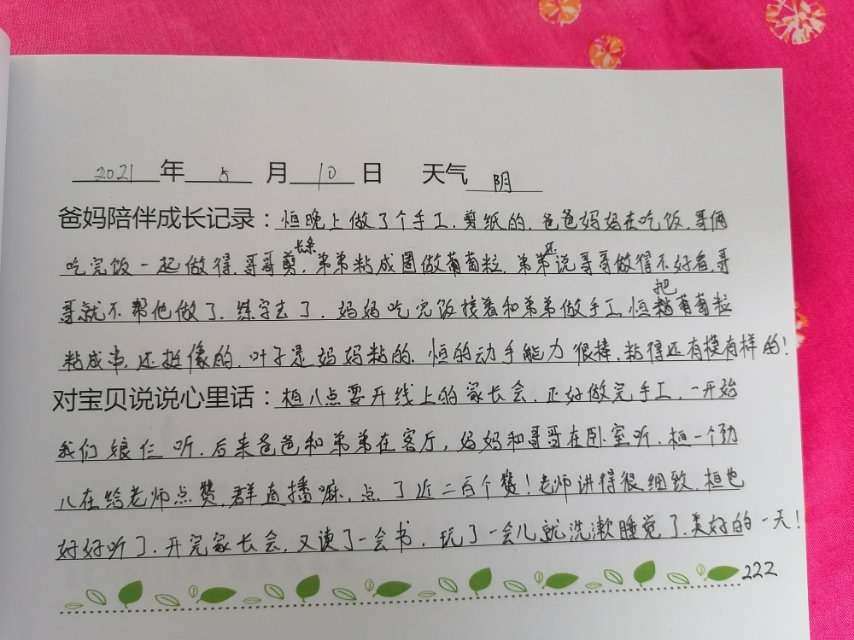 2021年 5月10日 天气 阴
爸妈陪伴成长记录：恒晚上做了个手工，剪纸的，爸爸妈妈在吃饭，哥俩
吃完饭一起做得，哥哥剪长条，弟弟粘成圈做葡萄粒，弟弟还说哥哥做得不好看，哥
哥就不帮他做了，练字去了，妈妈吃完饭接着和弟弟做手工，恒把葡萄粒
粘成串，还挺像的，叶子是妈妈粘的，恒的动手能力很棒，粘得还有模有样的！
对宝贝说说心里话：恒八点要开线上的家长会，正好做完手工，一开始
我们娘仨听，后来爸爸和弟弟在客厅，妈妈和哥哥在卧室听，恒一个劲
儿在给老师点赞，群直播嘛，点了近二百个赞！老师讲得很细致，恒也
好好听了，开完家长会，又读了一会书，玩了一会儿就洗漱睡觉了，美好的一天！
222